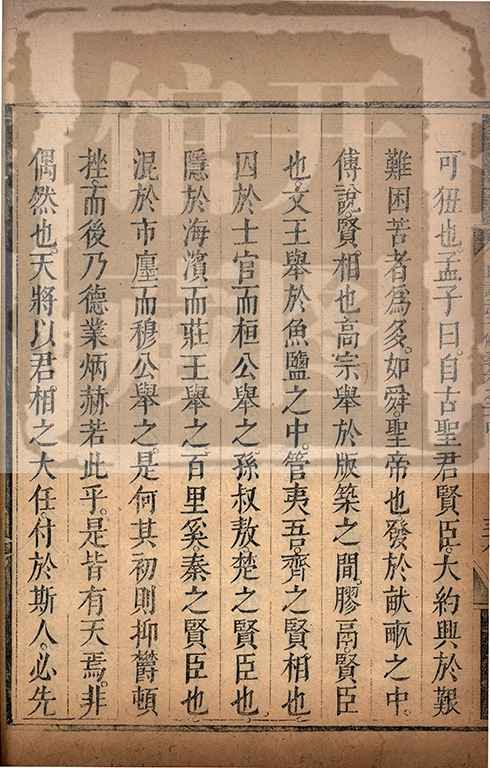 可狃也孟子曰自古聖君賢臣大約興於艱
難困苦者為多如舜聖帝也發於畎畝之中
傅說賢相也高宗舉於版築之間膠鬲賢臣
也文王舉於魚鹽之中管夷吾齊之賢相也
囚於士官而桓公舉之孫叔敖楚之賢臣也
隱於海濱而莊王舉之百里奚秦之賢臣也
混於市廛而穆公舉之是何其初則抑鬱頓
挫而後乃德業炳赫若此乎是皆有天焉非
偶然也天將以君相之大任付於斯人必先